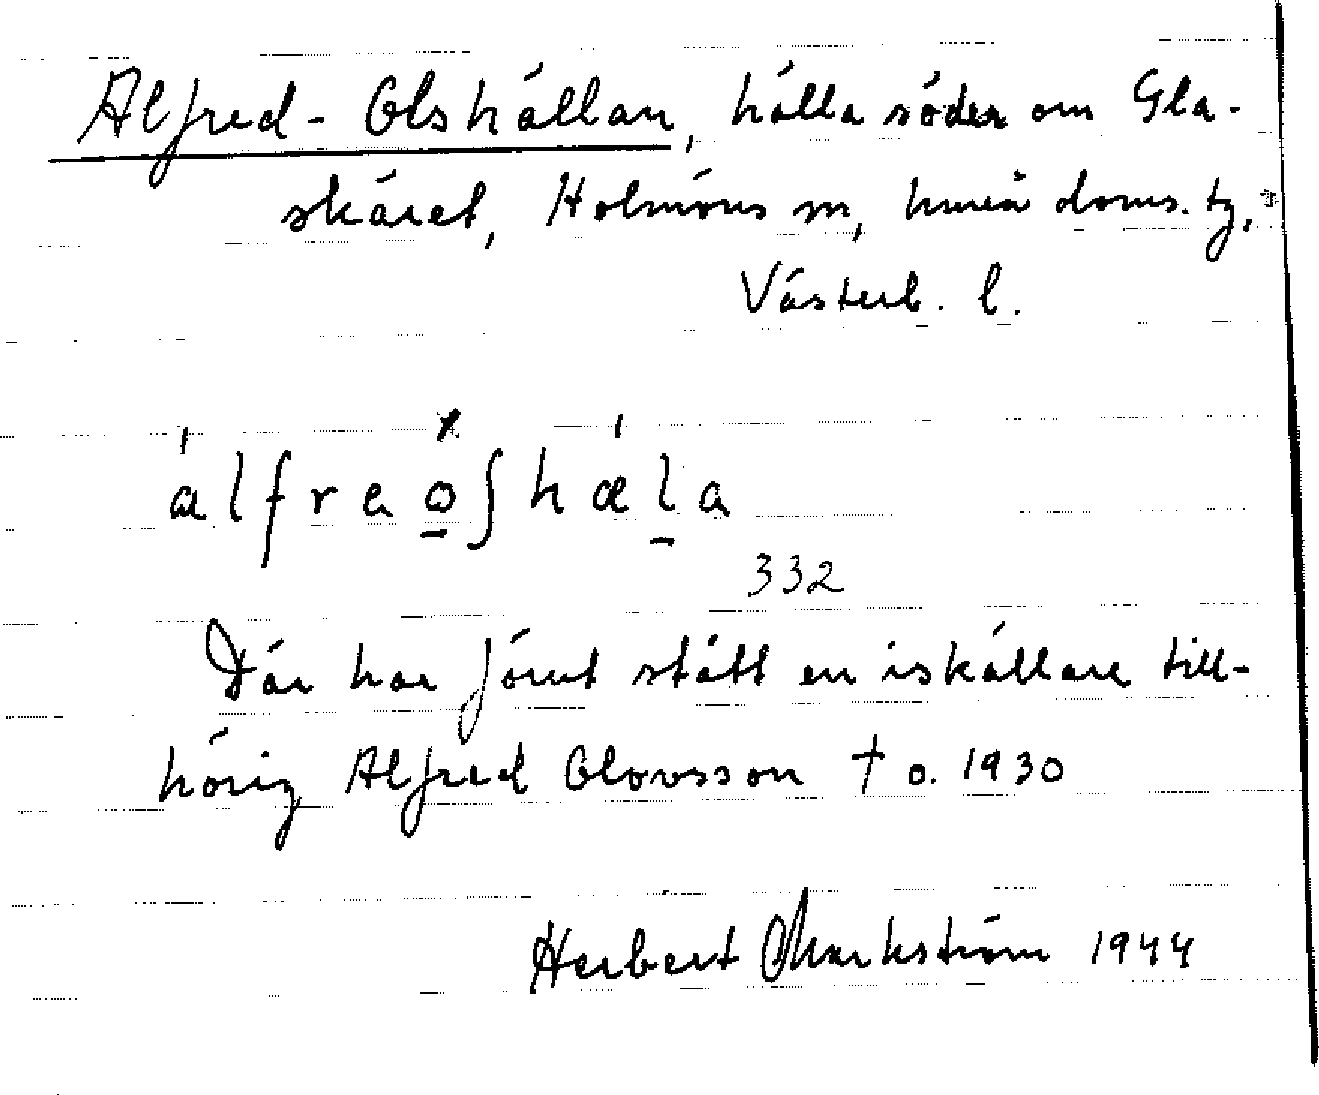 Alfred-Olshällan, hälla söder om Gla-
skäret, Holmöns sn, Umeå doms. tg,
Västerb. l.
álfreo̠ʃhæl̠a
332
Där har förut stått en iskällare till-
hörig Alfred Olovsson † o. 1930
Herbert Markström 1944